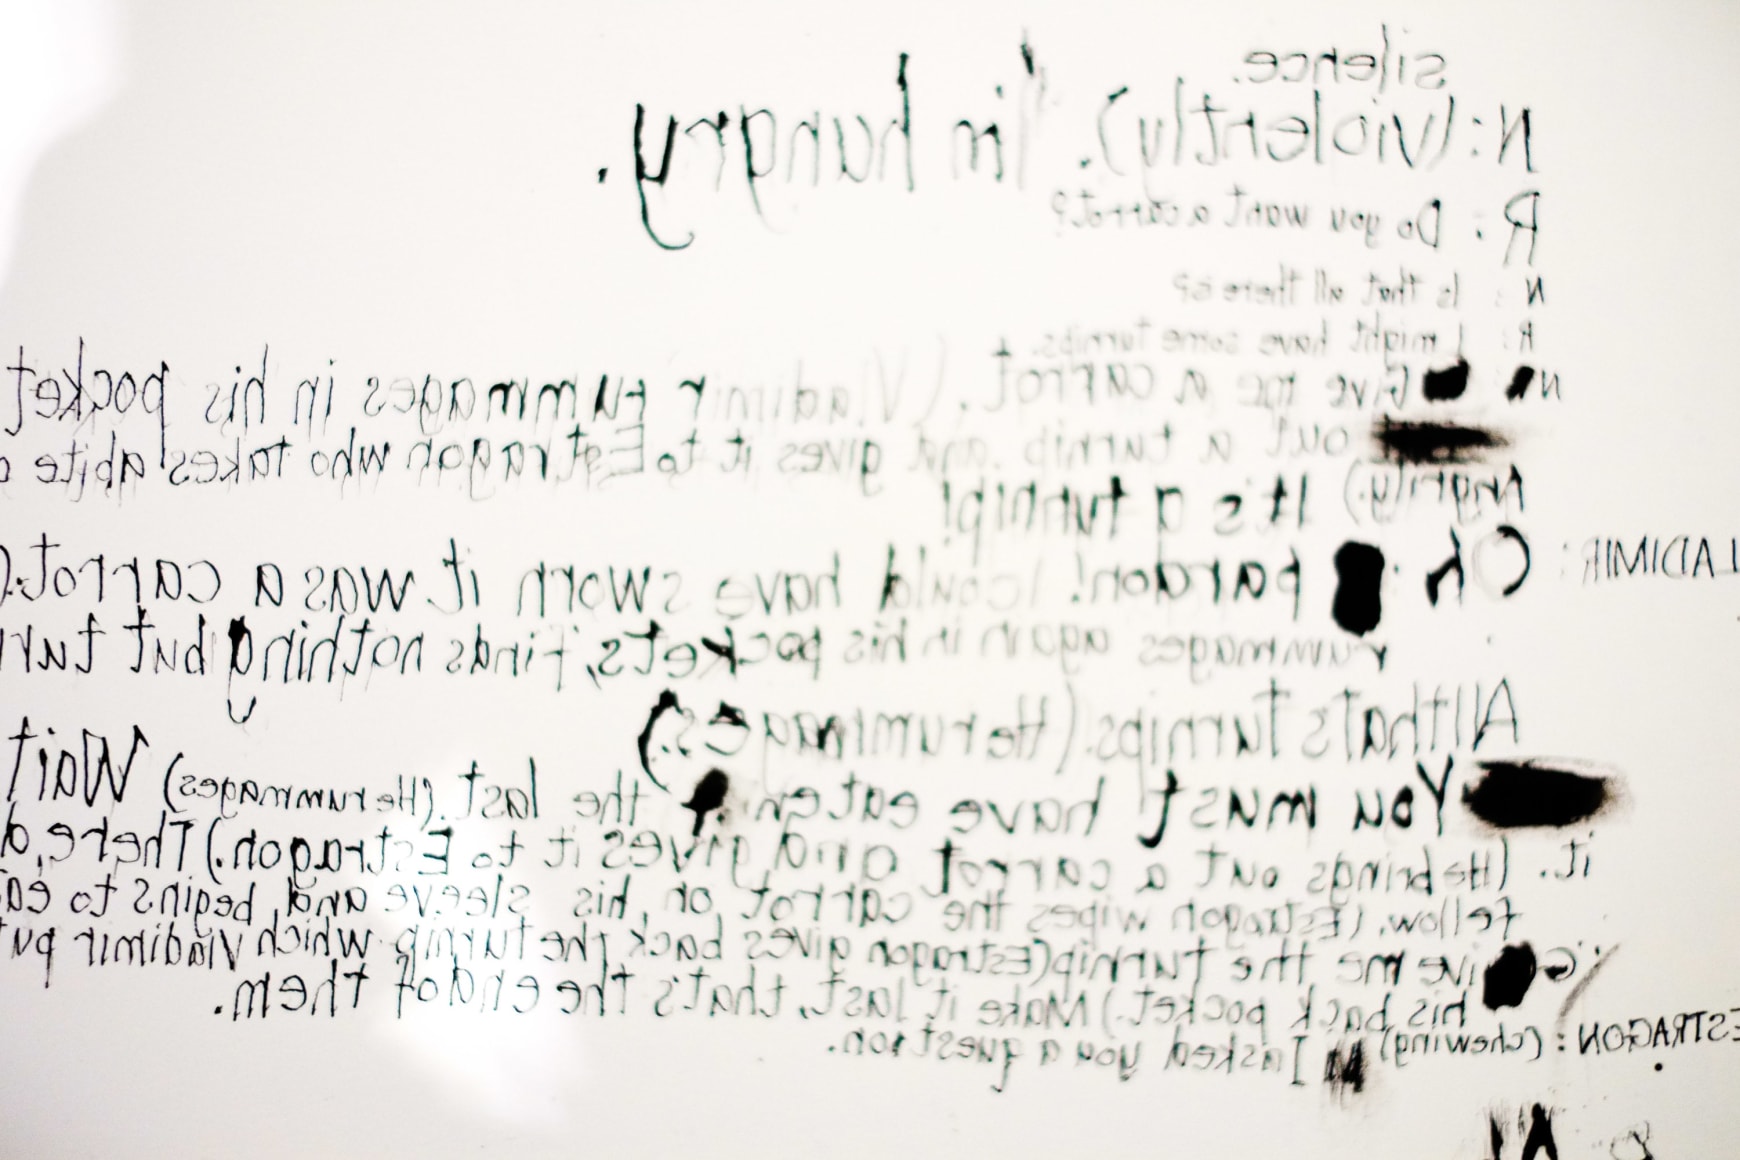 silence.
N: (violently). I'm hungry.
R: Do you want a carrot?
N: Is that all there is?
R: I might have some turnips.
N: Give me a carrot. (Vladimir rummages in his pocket
out a turnip and gives it to Estragon who takes a bite
Angrily.) It's a turnip!
LADIMIR: Oh pardon! I could have sworn it was a carrot. (
rummages again in his pockets, finds nothing but turn
All that's turnips. (He rummages.)
You must have eaten the last. (He rummages) Wait
it. (He brings out a carrot and gives it to Estragon.) There, d
fellow. (Estragon wipes the carrot on his sleeve and begins to ea
: Give me the turnip (Estragon gives back the turnip which Vladimir put
his back pocket.) Make it last, that's the end of them.
ESTRAGON: (chewing) I asked you a question.